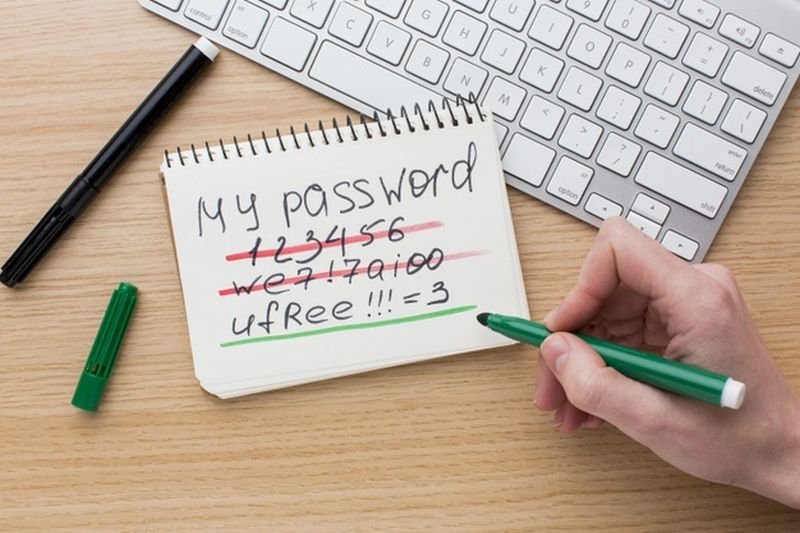 control
option
Z
X
C
V
B
G
H
N
U
J
M
I
K
<
,
9
O
L
>
.
0
P
:
;
?
/
option
_
-
{
[
"
'
+
=
}
]
|
\
delete
enter
return
shift
My password
123456
we7!7aioo
ufRee!!!=3